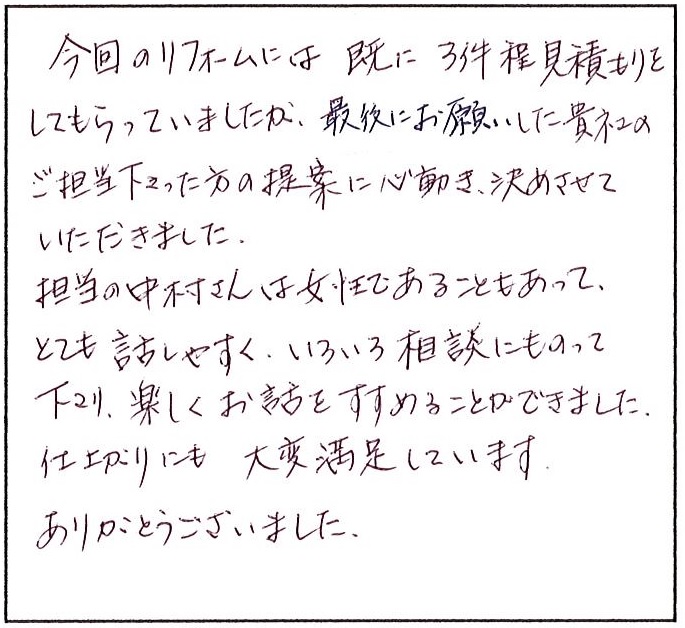 今回のリフォームには 既に 3件程見積もりを
してもらっていましたが、最後にお願いした貴社の
ご担当下さった方の提案に心動き、決めさせて
いただきました.
担当の中村さんは女性であることもあって、
とても話しやすく、いろいろ相談にものって
下さり、楽しくお話をすすめることができました.
仕上がりにも 大変満足しています.
ありがとうございました.